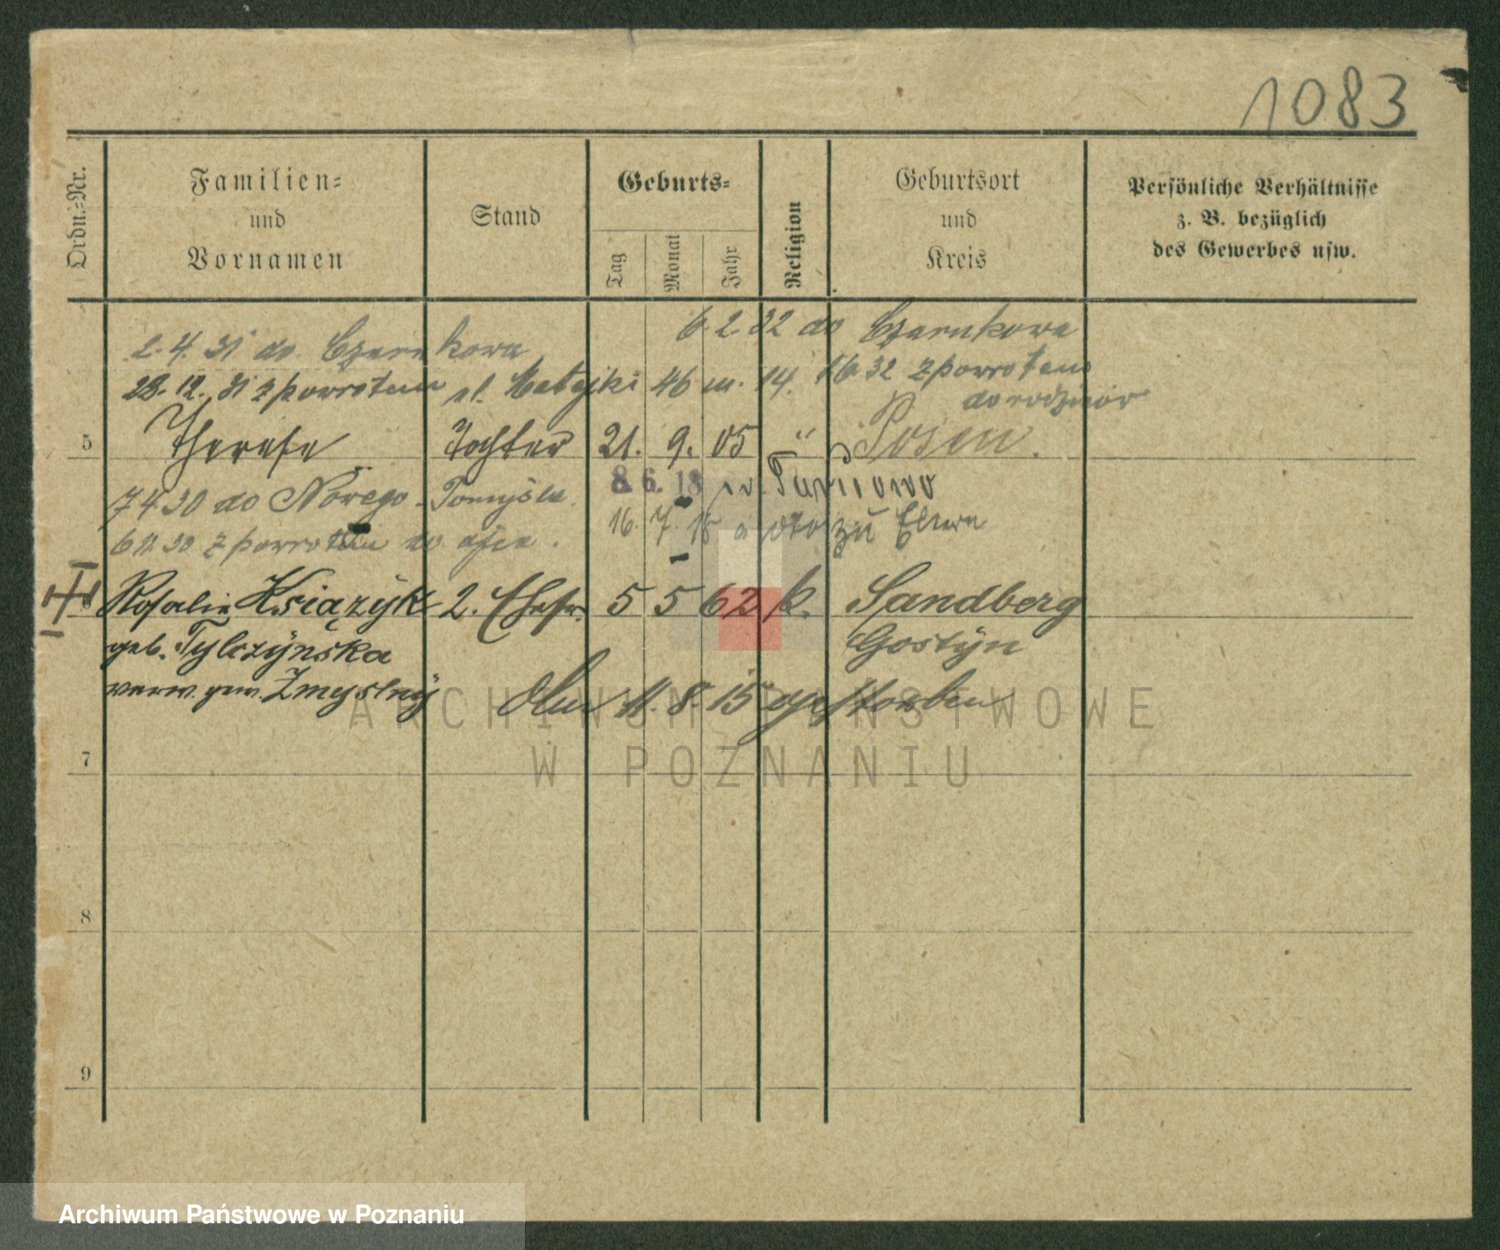 1083
Ordn.-Nr.
Familien-
und
Vornamen
Stand
Geburts-
Tag
Monat
Jahr
Religion
Geburtsort
und
Kreis
Persönliche Verhältnisse
z. B. bezüglich
des Gewerbes usw.
6 2 32 do Czarnkowa
2. 4. 31 do Czarnkowa
28. 12. 31 z powrotem ul. Matejki 46 m. 14. 16 32 z powrotem
do rodziców
5 Therese Tochter 21. 9. 05 " Posen.
8. 6. 18
7 4 30 do Nowego-Tomyśla.
16. 7. 18 zu Eltern
6 11 30 z powrotem do
6 Rosalie Książyk 2. Ehefr. 5 5 62 k. Sandberg
geb. Tylczyńska Gostyn
verw. gew. Zmyslny Am 11. 8. 15 gestorben
ARCHIWUM PAŃSTWOWE
W POZNANIU
7
8
9
Archiwum Państwowe w Poznaniu